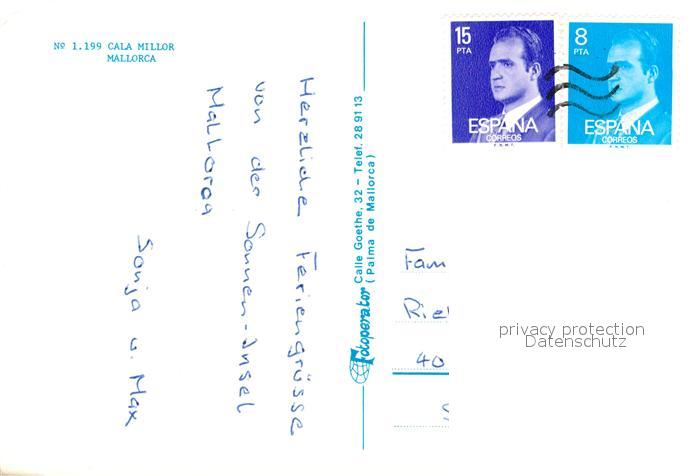 Nº 1.199 CALA MILLOR
MALLORCA
Herzliche Feriengrüsse
von der Sonnen-Insel
Mallorca
Sonja u. Max
Fotoperator Calle Goethe, 32 – Telef. 28 91 13
(Palma de Mallorca)
15
PTA
ESPAÑA
CORREOS
F.N.M.T.
8
PTA
ESPAÑA
CORREOS
F.N.M.T.
Fam
40
privacy protection
Datenschutz